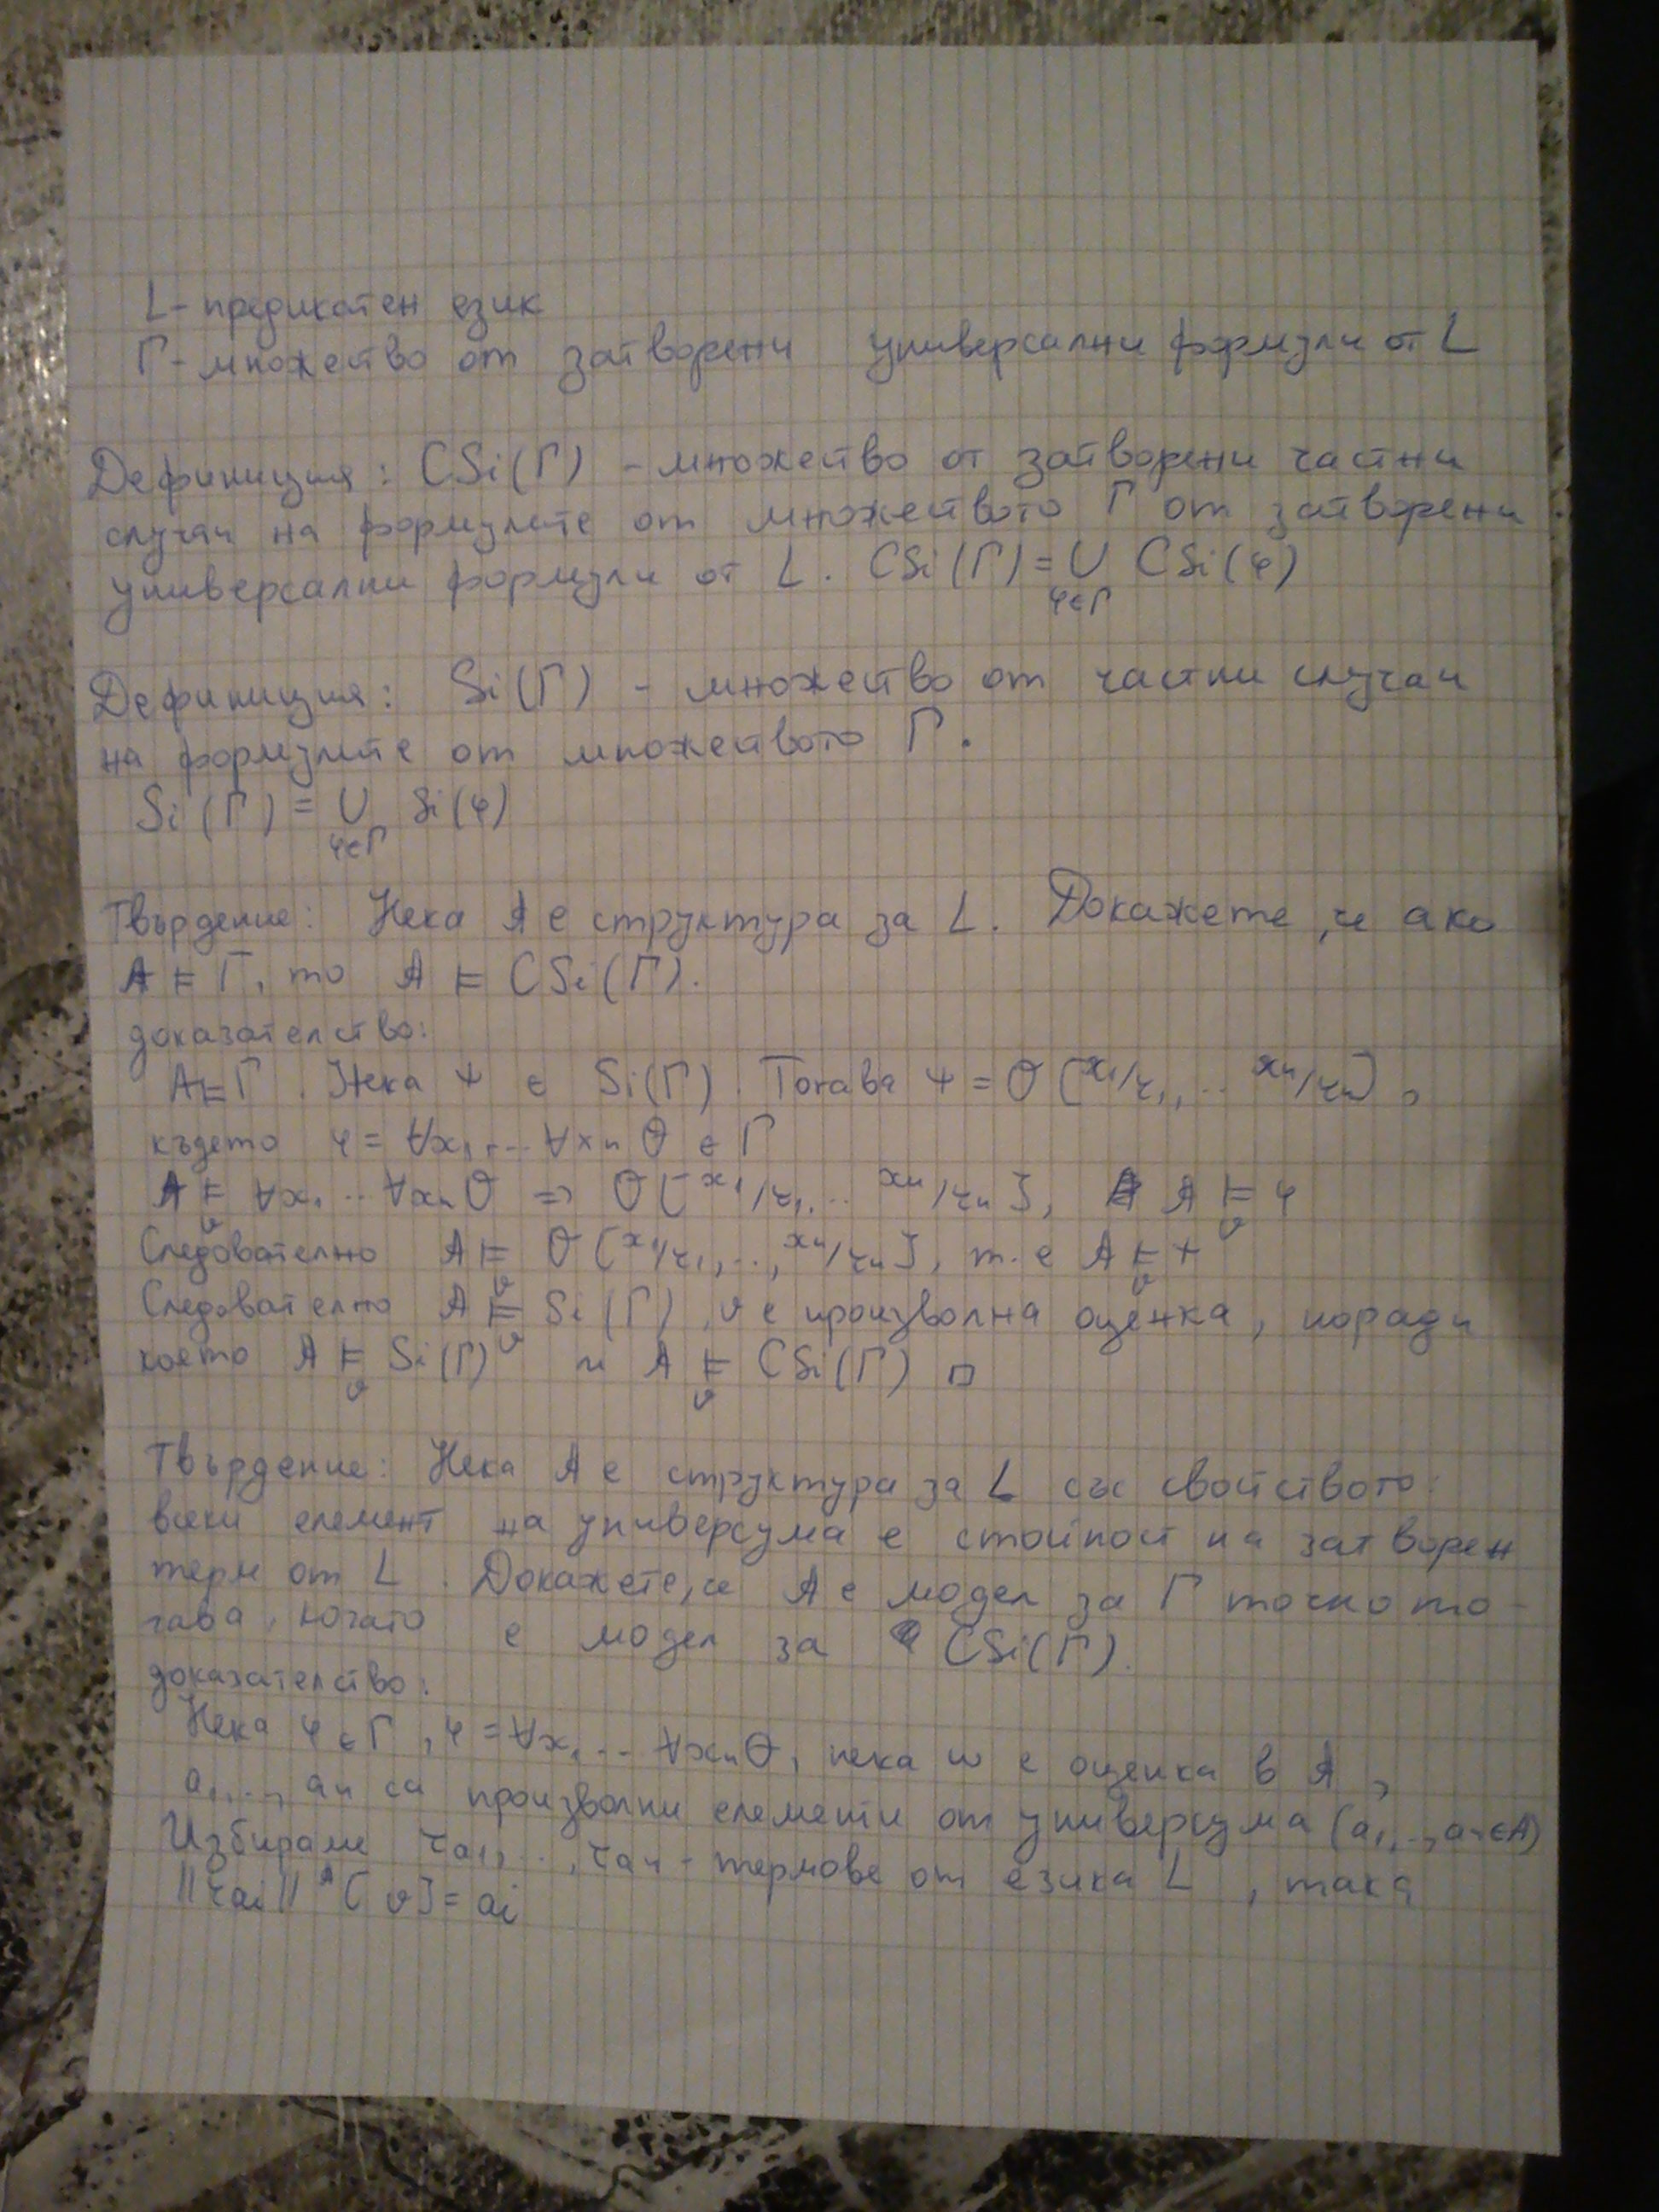 L - предикатен език
Γ - множество от затворени универсални формули от L
Дефиниция: CSi(Γ) - множество от затворени частни
случаи на формулите от множеството Γ от затворени
универсални формули от L. CSi(Γ) = ∪ CSi(φ)
φ∈Γ
Дефиниция: Si(Γ) - множество от частни случаи
на формулите от множеството Γ.
Si(Γ) = ∪ Si(φ)
φ∈Γ
Твърдение: Нека A е структура за L. Докажете, че ако
A ⊨ Γ, то A ⊨ CSi(Γ).
доказателство:
A ⊨ Γ. Нека ψ ∈ Si(Γ). Тогава ψ = θ[x1/τ1, .. xn/τn],
където φ = ∀x1, ... ∀xn θ ∈ Γ
A ⊨ᵥ ∀x1 .. ∀xn θ => θ[x1/τ1, .. xn/τn], A ⊨ᵥ φ
Следователно A ⊨ᵥ θ[x1/τ1, .., xn/τn], т.е A ⊨ᵥ ψ
Следователно A ⊨ᵥ Si(Γ), v е произволна оценка, поради
което A ⊨ᵥ Si(Γ) и A ⊨ᵥ CSi(Γ) □
Твърдение: Нека A е структура за L със свойството:
всеки елемент на универсума е стойност на затворен
терм от L. Докажете, че A е модел за Γ точно то-
гава, когато е модел за CSi(Γ).
доказателство:
Нека φ ∈ Γ, φ = ∀x1 ... ∀xn θ, нека w е оценка в A,
a1, .., an са произволни елементи от универсума (a1, .., an ∈ A)
Избираме τa1, .., τan - термове от езика L, така
||τai||ᴬ[v] = ai